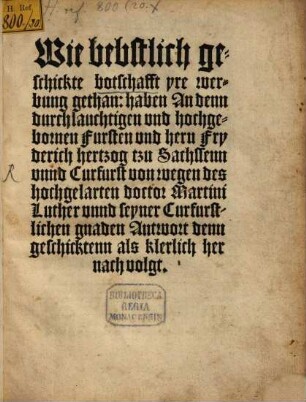 H. Ref.
800/30.
H. ref. 800 (20.x
Wie bebstlich ge-
schickte botschafft yre wer-
bung gethan: haben An denn
durchlauchtigen vnd hochge-
bornen Fursten vnd hern Fry
derich hertzog tzu Sachssenn
vnnd Curfurst von wegen des
hochgelarten doctor Martini
Luther vnnd seyner Curfurst-
lichen gnaden Antwort denn
geschicktenn als klerlich her
nach volgt.
R
BIBLIOTHECA
REGIA
MONACENSIS